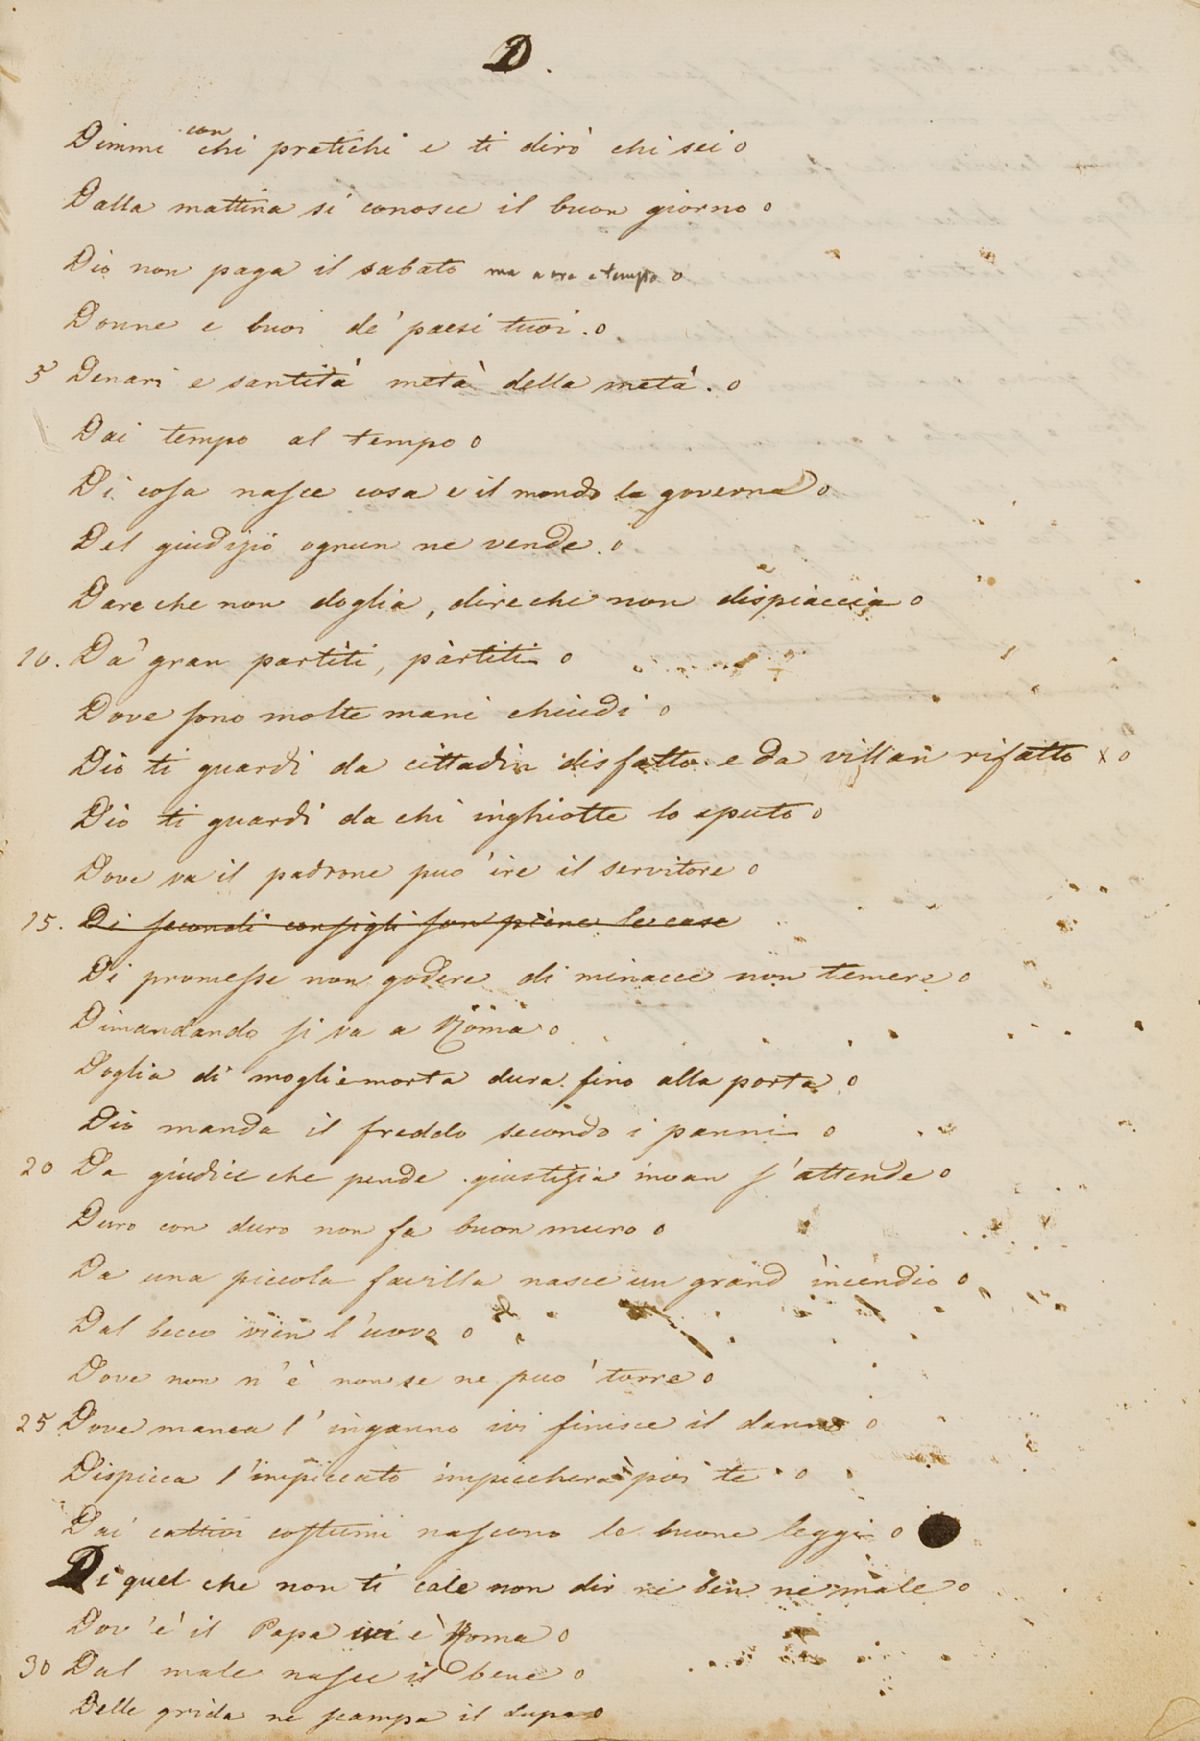 D.
Dimmi con chi pratichi e ti dirò chi sei o
Dalla mattina si conosce il buon giorno o
Dio non paga il sabato ma a ora e tempo o
Donne e buoi de' paesi tuoi . o
5 Denari e santità metà della metà . o
Dai tempo al tempo o
Di cosa nasce cosa e il mondo la governa o
Del giudizio ognun ne vende . o
Dare che non doglia, dire che non dispiaccia o
10. Da' gran partiti, pàrtiti o
Dove sono molte mani chiudi o
Dio ti guardi da cittadin disfatto e da villan rifatto x o
Dio ti guardi da chi inghiotte lo sputo o
Dove va il padrone può ire il servitore o
15. Di secondi consigli son piene le case
Di promesse non godere di minacce non temere o
Dimandando si va a Roma o
Doglia di moglie morta dura fino alla porta o
Dio manda il freddo secondo i panni o
20 Da giudice che pende giustizia invan s'attende o
Duro con duro non fa buon muro o
Da una piccola favilla nasce un grand' incendio o
Dal becco vien l'uovo o
Dove non n'è non se ne può torre o
25 Dove manca l'inganno ivi finisce il danno o
Dispicca l'impiccato impiccherà poi te o
Dai cattivi costumi nascono le buone leggi o
Di quel che non ti cale non dir nè ben nè male o
Dov'è il Papa ivi è Roma o
30 Dal male nasce il bene o
Delle grida ne scampa il lupo o